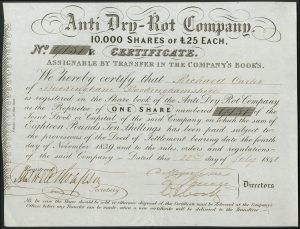 Anti Dry-Rot Company.
10,000 SHARES OF £25 EACH.
No.
CERTIFICATE.
ASSIGNABLE BY TRANSFER IN THE COMPANY'S BOOKS.
We hereby certify that Richard Carter
of Buckinghamshire
is registered in the Share book of the Anti Dry-Rot Company
as the Proprietor of ONE SHARE numbered
Joint Stock or Capital of the said Company on which the sum of
Eighteen Pounds Ten Shillings has been paid, subject to
the provisions of the Deed of Settlement bearing date the fourth
day of November 1839, and to the rules, orders and regulations
of the said Company Dated this day of July 1841
Secretary
Directors
In case the Share should be sold or otherwise disposed of, this Certificate must be delivered at the Company's
Office before any Transfer can be made, when a new certificate will be delivered to the Transferee